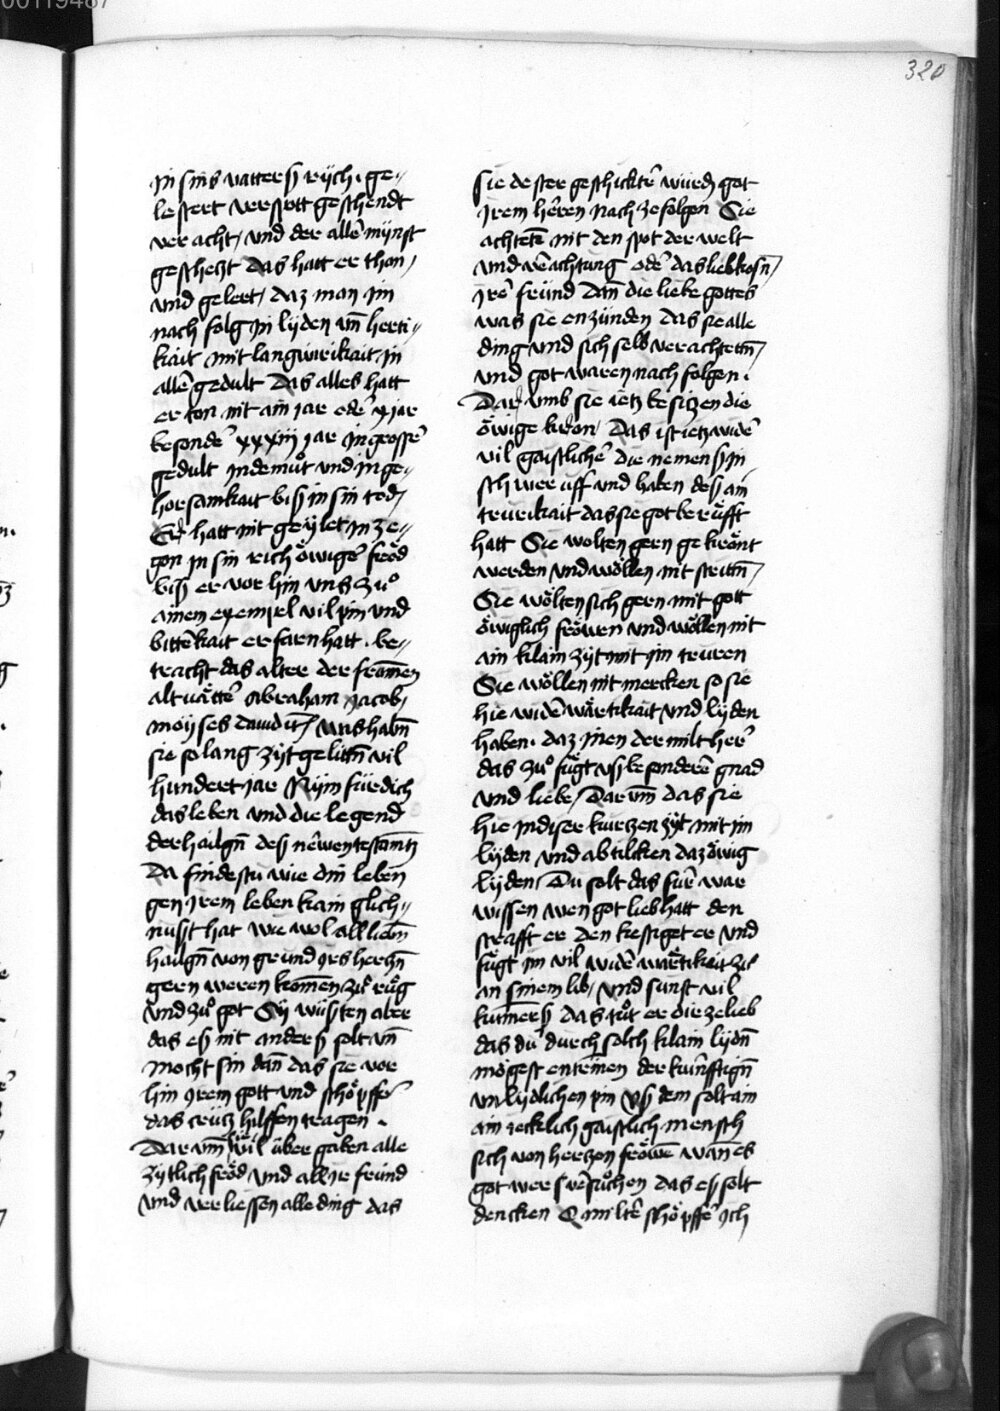 00119487
320
in sins vatterß rÿch . ge⸗
lestert verspott geschendt
ver acht / vnd der allē mÿnst
geschetzt das hatt er thon /
vnd gelert / daz man im
nach folg in lÿden vn̄ herti⸗
kait mit langwirikait in
allē gedult Das alles hatt
er ton nit ain jar odē x jar
besondē xxxiij jar in grossē
gedult in demuͦt vnd in ge⸗
horsamkait biß in sin tod /
Er hatt nit geÿlet in ze⸗
gon in sin rich öwigē fröd
biß er vor hin vns zuͦ
ainem exempel vil pin vnd
bittē kait erfaren hatt . be⸗
tracht das alter der fromē
altuättē Abraham Jacob /
moÿses dauid ꝛc / was habn̄
sie so lang zÿt gelittn̄ vil
hundert jar Nÿm für dich
das leben vnd die legend
der hailgn̄ deß nēwen testamētz
Da findestu wie din leben
gen jrem leben kain glich⸗
nußt hat wie wol all liebn̄
hailgn̄ von grund jrs herczn̄
gern weren komen zuͦ ruͤg
vnd zuͦ got Sÿ wüßten aber
das eß nit anderß solt vn̄
mocht sin dan̄ das sie vor
hin jrem gott vnd schöpffē
das crütz hilffen tragen .
Dar vm̄ wil über gaben alle
zÿtlich fröd vnd all ir fründ
vnd verliessen alle ding das
sie dester geschicktē würdn̄ got
jrem hēren nach ze folgen Sie
achtetē nit den spot der welt
vnd vēachtung odē das liebkosn̄ /
irē fründ dan̄ die liebe gottes
was sie enzünden das sie alle
ding vnd sich selb verachtettn̄ /
vnd got waren nach folgen .
Dar vmb sie ietz besitzen die
öwige kron / Das ist ietz widē
vil gaistlichē die nemen ß in
schwer uff vnd haben deß ain
trurikait das sie got berüfft
hatt Sie wolten gern gekrönt
werden vnd wöllen nit strittn̄ /
Sie wölten sich gern mit gott
öwiglich fröwen vnd wöllen nit
ain klain zÿt mit im truren
Sie wöllen nit mercken so sie
hie widēwärtikait vnd lÿden
haben . daz inen der milt herē
das zuͦ fuͤgt vß besonderē gnad
vnd liebe / Dar vm̄ das sie
hie in diser kurtzen zÿt mit im
lÿden vnd abtilcken daz öwig
lÿden / Du solt das für war
wissen wen got lieb hatt den
strafft er den kestiget er vnd
fuͤgt im vil widē wärtikait zuͦ
an sinem lib / vnd sunst vil
kum̄erß das tuͦt er die ze lieb
das du durch solch klain lÿdn̄
mögest entrinen der künfftign̄
vnlÿdlichen pin Vß dem solt ain
ain iecklich gaistlich mensch
sich von hertzen fröwē wan̄ es
got wer suͦchen das eß solt
dencken O miltē schöpffē ich